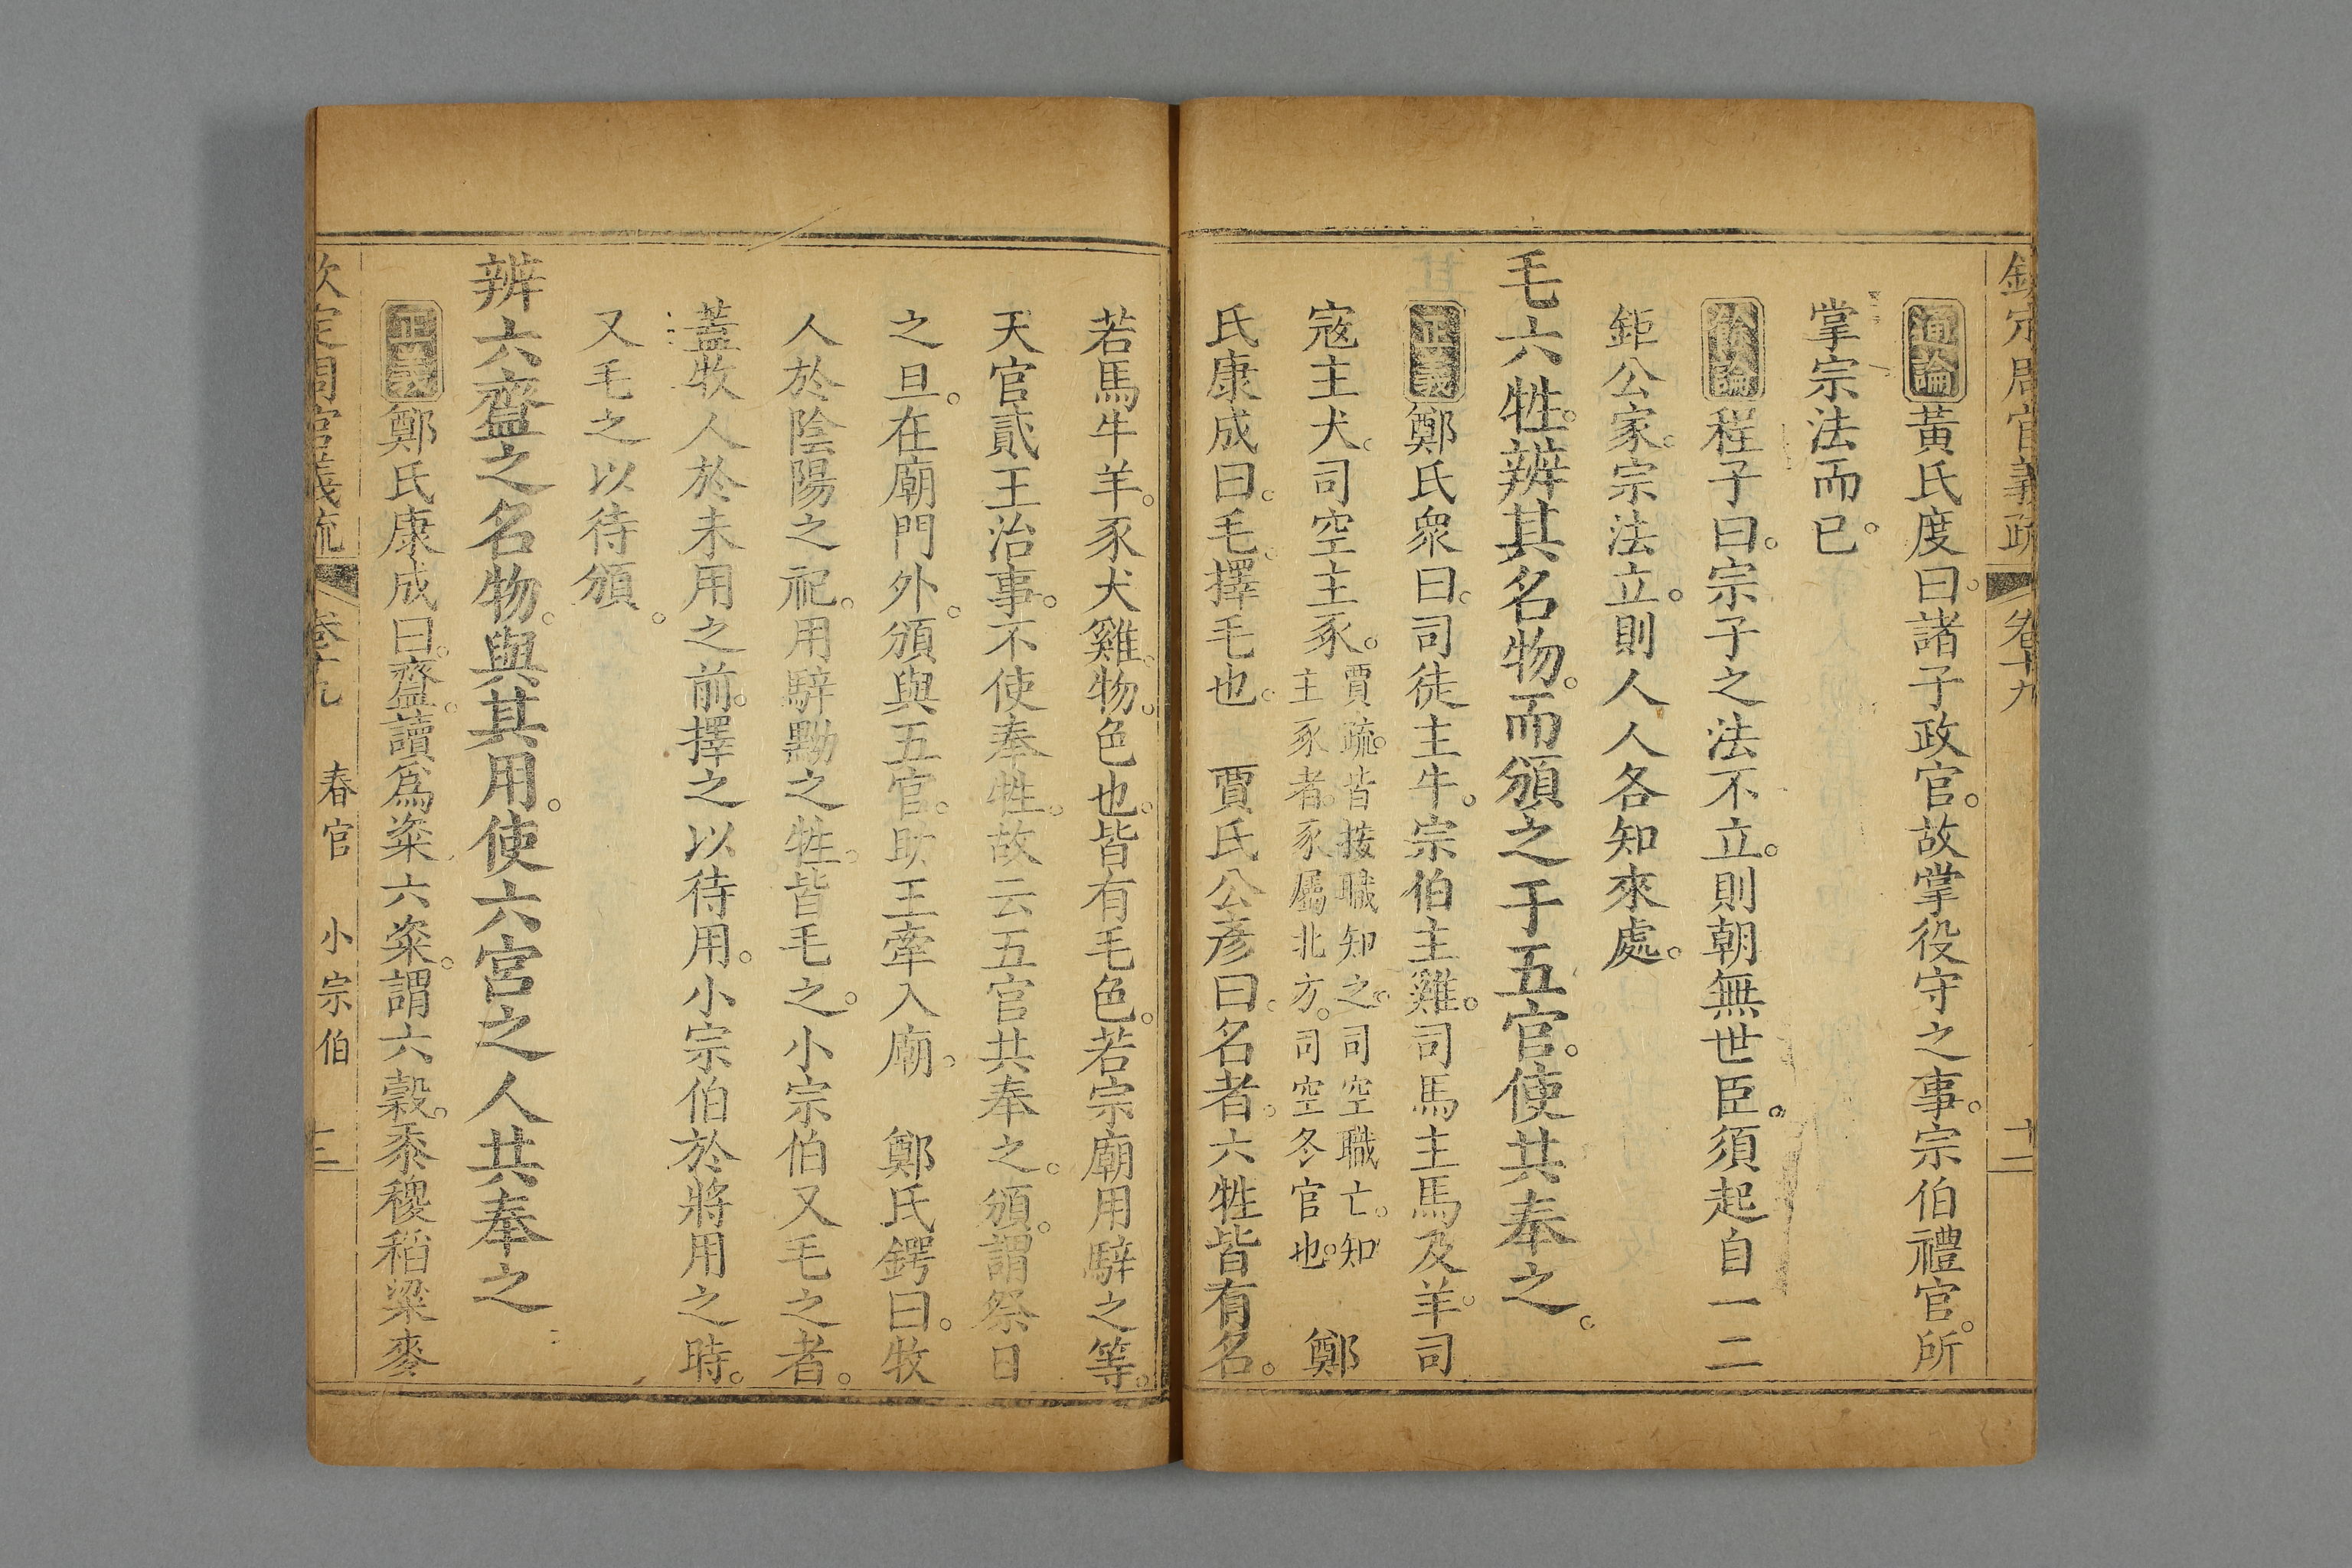 欽定周官義疏 卷十九 十二
通論黃氏度曰。諸子政官。故掌役守之事。宗伯禮官。所
掌宗法而已。
餘論程子曰。宗子之法不立。則朝無世臣。須起自一二
鉅公家。宗法立。則人人各知來處。
毛六牲。辨其名物。而頒之于五官。使共奉之。
正義鄭氏衆曰。司徒主牛。宗伯主雞。司馬主馬及羊。司
寇主犬。司空主豕。賈疏。皆按職知之。司空職亡。知主豕者。豕屬北方。司空冬官也。 鄭
氏康成曰。毛。擇毛也。 賈氏公彥曰。名者。六牲皆有名。
若馬牛羊。豕犬雞。物。色也。皆有毛色。若宗廟用騂之等。
天官貳王治事。不使奉牲。故云五官共奉之。頒。謂祭日
之旦。在廟門外。頒與五官。助王牽入廟。 鄭氏鍔曰。牧
人於陰陽之祀。用騂黝之牲。皆毛之。小宗伯又毛之者。
蓋牧人於未用之前。擇之以待用。小宗伯於將用之時。
又毛之以待頒。
辨六齍之名物。與其用。使六宮之人共奉之
正義鄭氏康成曰。齍。讀爲粢。六粢。謂六穀。黍稷稻粱麥
欽定周官義疏 卷十九 春官 小宗伯 十三